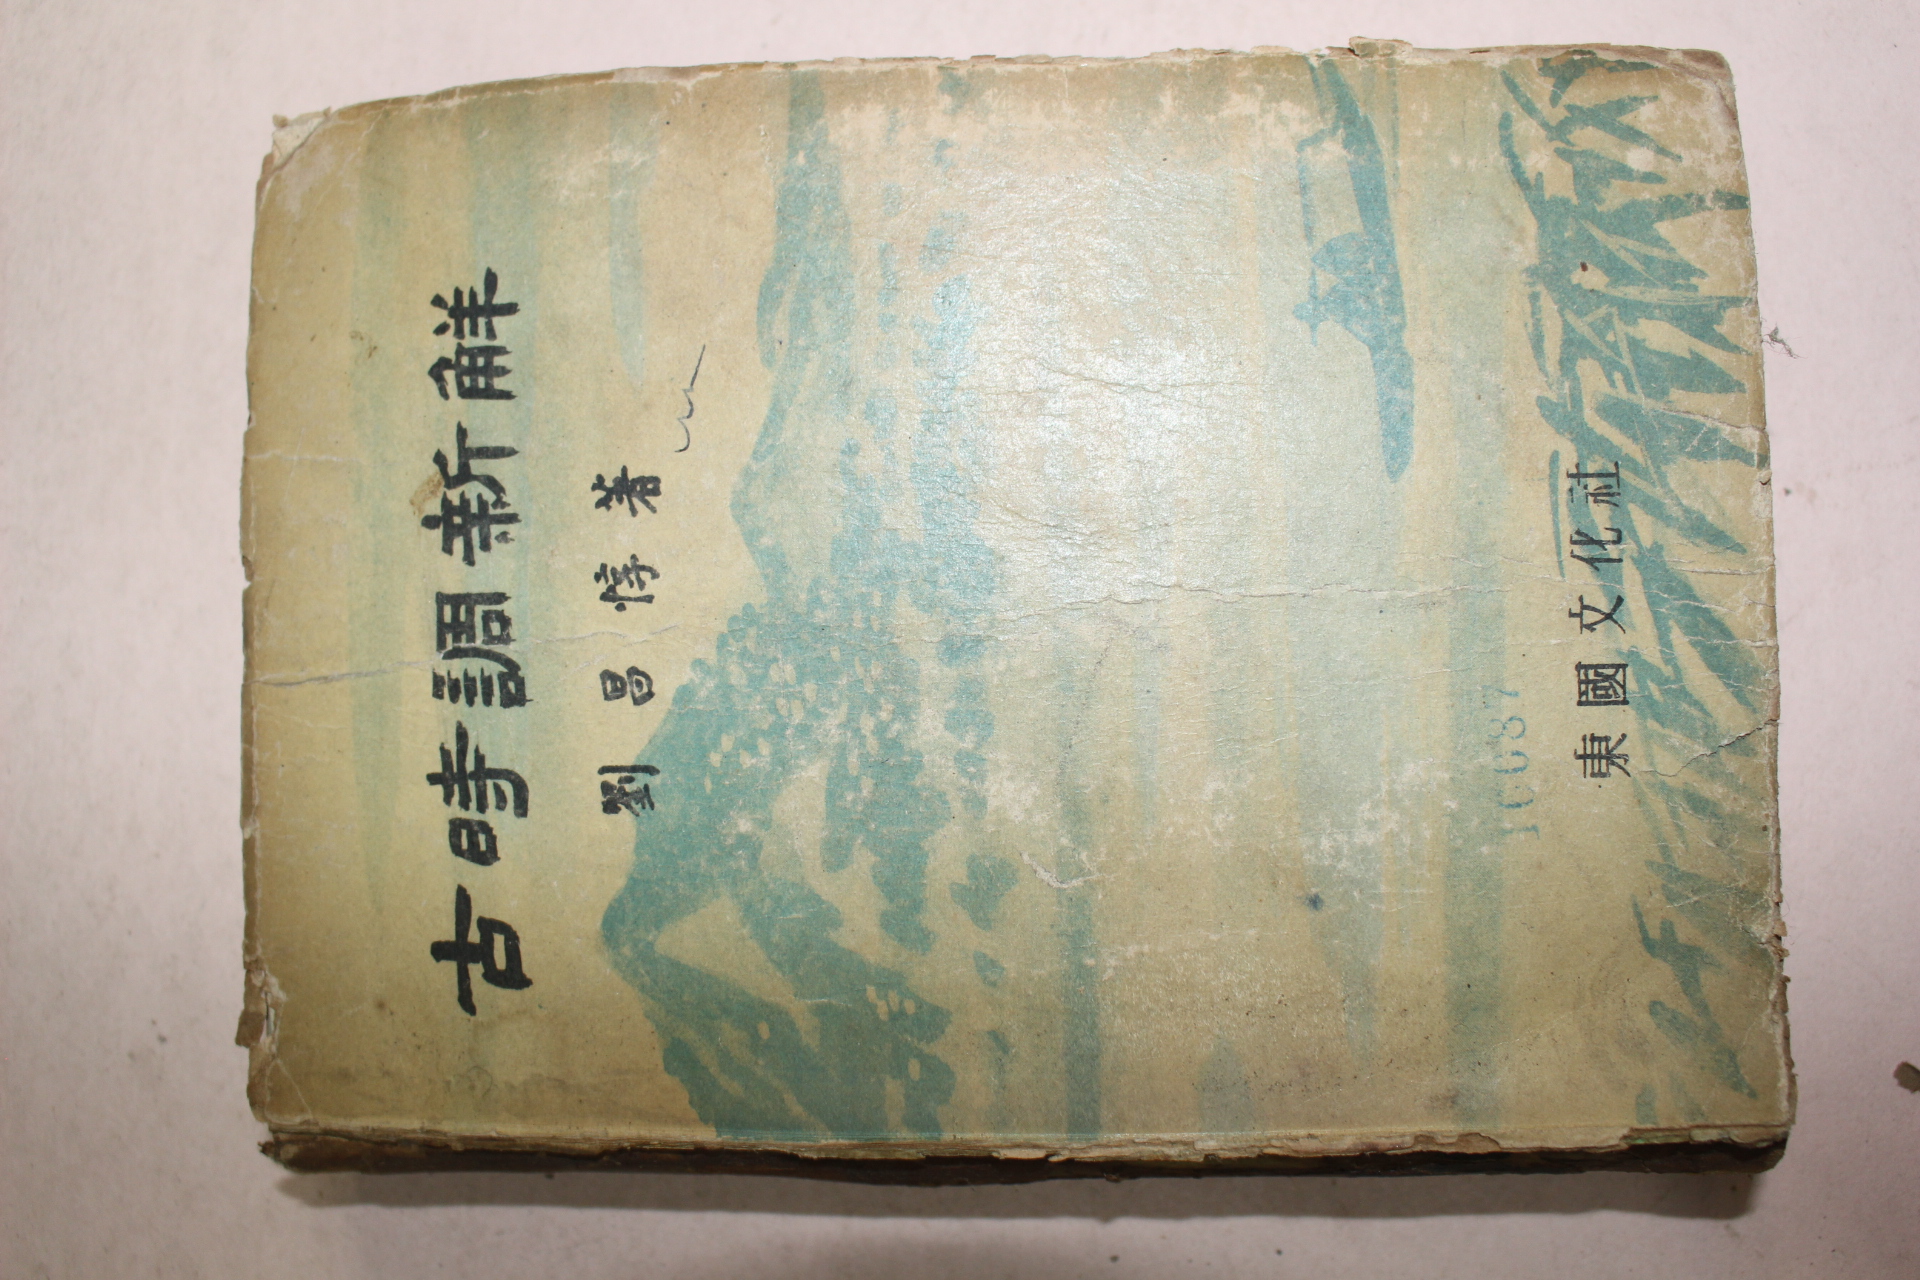 古時調新解
劉昌惇 著
10087
東國文化社